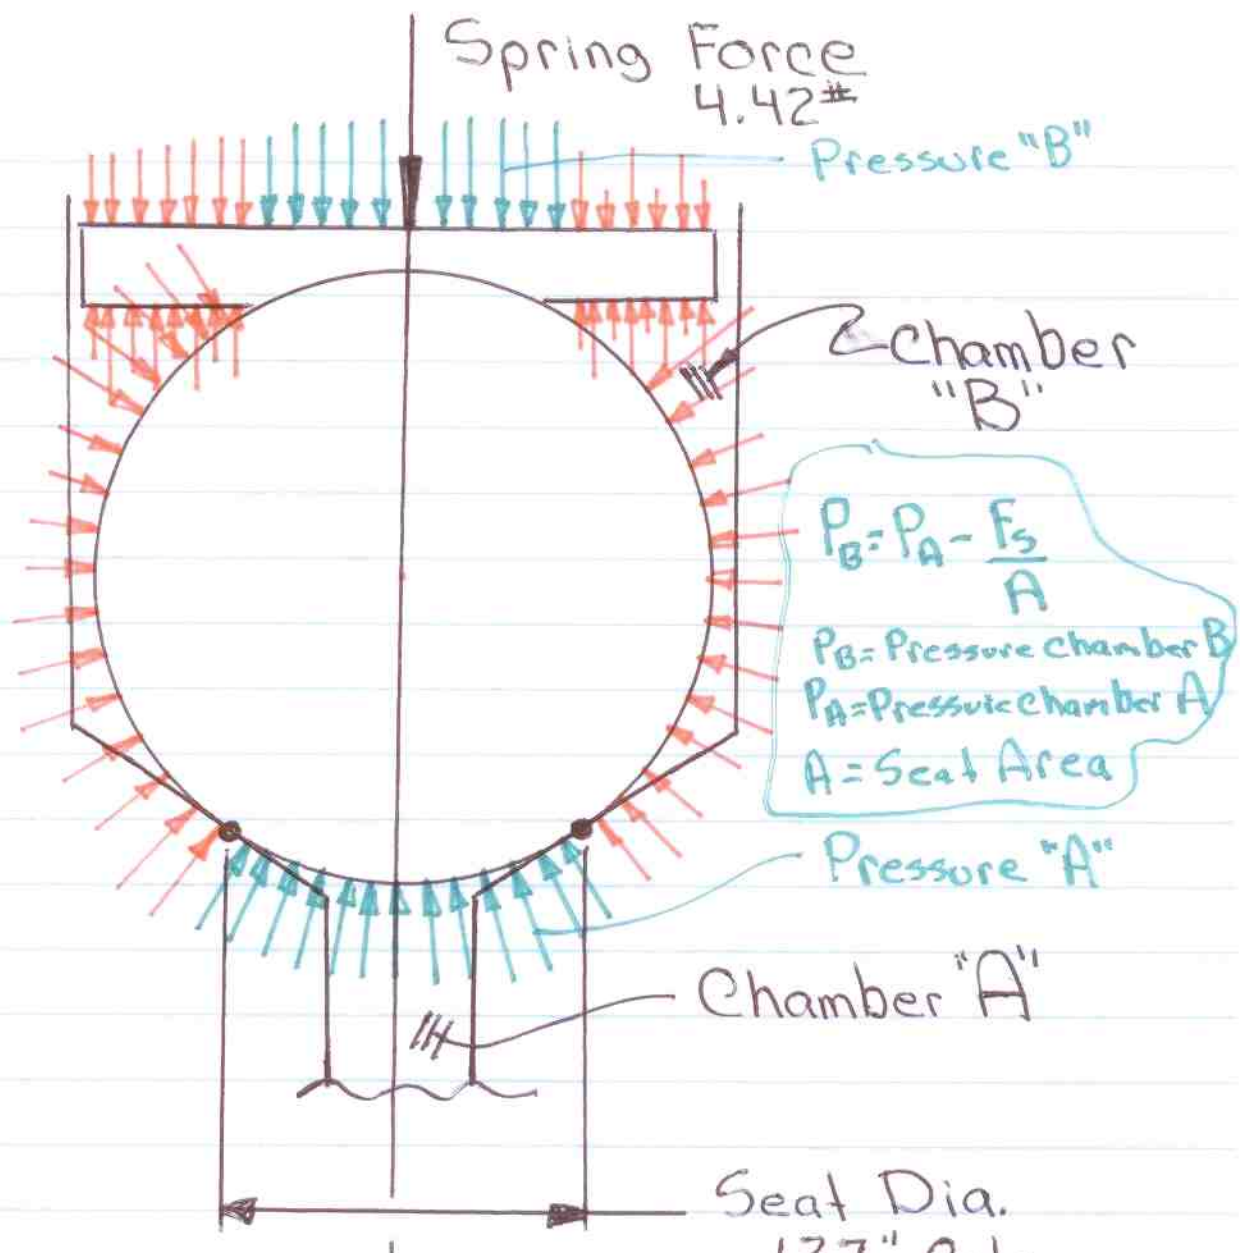 Spring Force
4.42#
Pressure "B"
Chamber
"B"
P_B = P_A - F_S/A
P_B = Pressure chamber B
P_A = Pressure chamber A
A = Seat Area
Pressure "A"
Chamber "A"
Seat Dia.